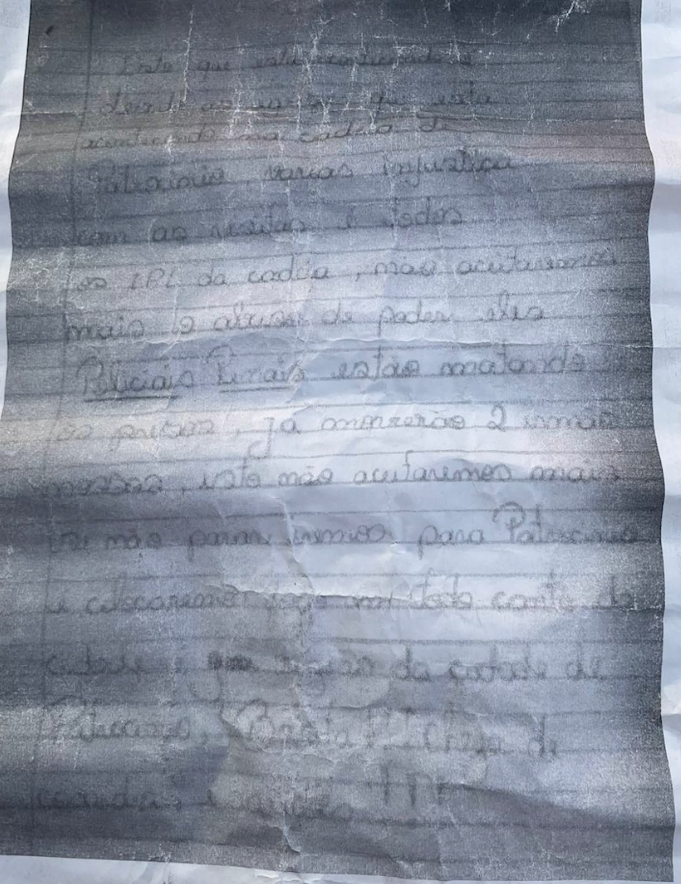 Este que esta
devido as que esta
acontecendo na cadeia de
Patrocinio, varias injustiça
com as visitas é todos
os IPL da cadeia, não aceitaremos
mais o abuso de poder eles
Policiais Penais estão matando
os presos, já morrerão 2 irmão
nossos, isto não aceitaremos mais
se não parar iremos para Patrocinio
e colocaremos fogo em todo canto da
cidade é da cidade de
Patrocinio, Basta! Chega de
covardia